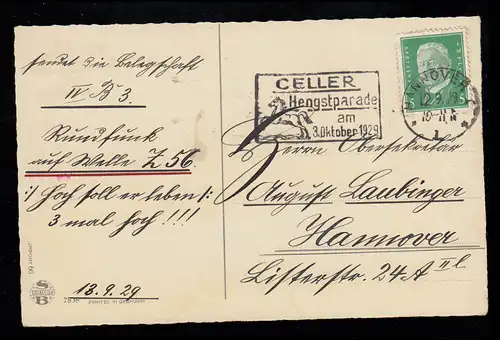 sendet die Belegschaft
IV B 3.
Rundfunk
auf Welle Z 56.
:/ Hoch soll er leben /:
3 mal hoch !!!
13.9.29
PRINTED IN GERMANY
CELLER
Hengstparade
am
3.Oktober 1929
HANNOVER
1
Herrn Obersekretär
August Laubinger
Hannover
Listerstr. 24A II l